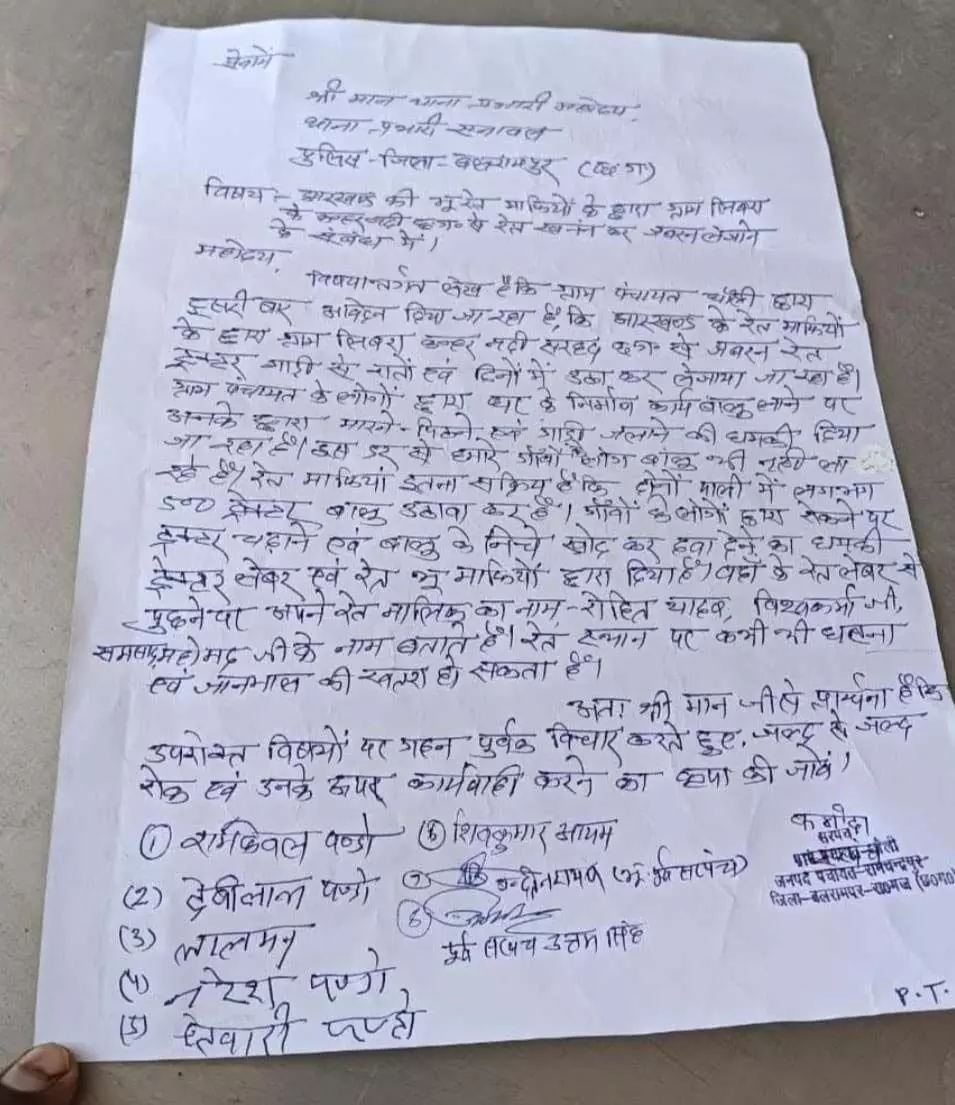 सेवामें
श्री मान थाना प्रभारी महोदय,
थाना प्रभारी सनावल
पुलिस-जिला-बलरामपुर (छ॰ग॰)
विषय:- झारखण्ड की भू रेत माफियों के द्वारा ग्राम लिबरा
के कन्हर नदी छ०ग० से रेत खनन कर जबरन लेजाने
के संबंध में।
महोदय,
विषयान्तर्गत लेख है कि ग्राम पंचायत द्वारा
दुसरी बार आवेदन दिया जा रहा है, कि झारखण्ड के रेत माफियों
के द्वारा ग्राम लिबरा कन्हर नदी सरहद छ०ग० से जबरन रेत
ट्रेक्टर गाड़ी से रातों एवं दिनों में उठा कर लेजाया जा रहा है।
ग्राम पंचायत के लोगों द्वारा घर के निर्माण कार्य बालु लाने पर
उनके द्वारा मारने-पिटने एवं गाड़ी जलाने की धमकी दिया
जा रहा है। इस डर से हमारे गाँवों लोग बालु भी नहीं ला
रहे है। रेत माफियां इतना सक्रिय है कि दोनों पाली में लगभग
500 ट्रेक्टर बालु उठावा कर है। गाँवों के लोगों द्वारा रोकने पर
ट्रेक्टर चढ़ाने एवं बालु के निचे खोद कर दवा देने का धमकी
ट्रेक्टर लेबर एवं रेत भू माफियों द्वारा दिया है। वहाँ के रेत लेबर से
पुछने पर अपने रेत मालिक का नाम- रोहित यादव, विश्वकर्मा जी,
समसाद, महोमद जी के नाम बताते है। रेत स्थान पर कभी भी घटना
एवं जानमाल की खतरा हो सकता है।
अतः श्री मान जी से प्रार्थना है कि
उपरोक्त विषयों पर गहन पुर्वक विचार करते हुए, जल्द से जल्द
रोक एवं उनके ऊपर कार्यवाही करने का कृपा की जावें।
(1) रामकेवल पण्डो (6) शिवकुमार आयम
(2) देवीलाल पण्डो (7) (भू॰ पूर्व सरपंच)
(3) लालमन (8)
पूर्व सरपंच उत्तम सिंह
(4) नरेश पण्डो
(5) तेवारी पण्डो
सरपंच
ग्राम पंचायत
जनपद पंचायत-रामचन्द्रपुर
जिला-बलरामपुर-रा०गंज (छ०ग०)
P.T.